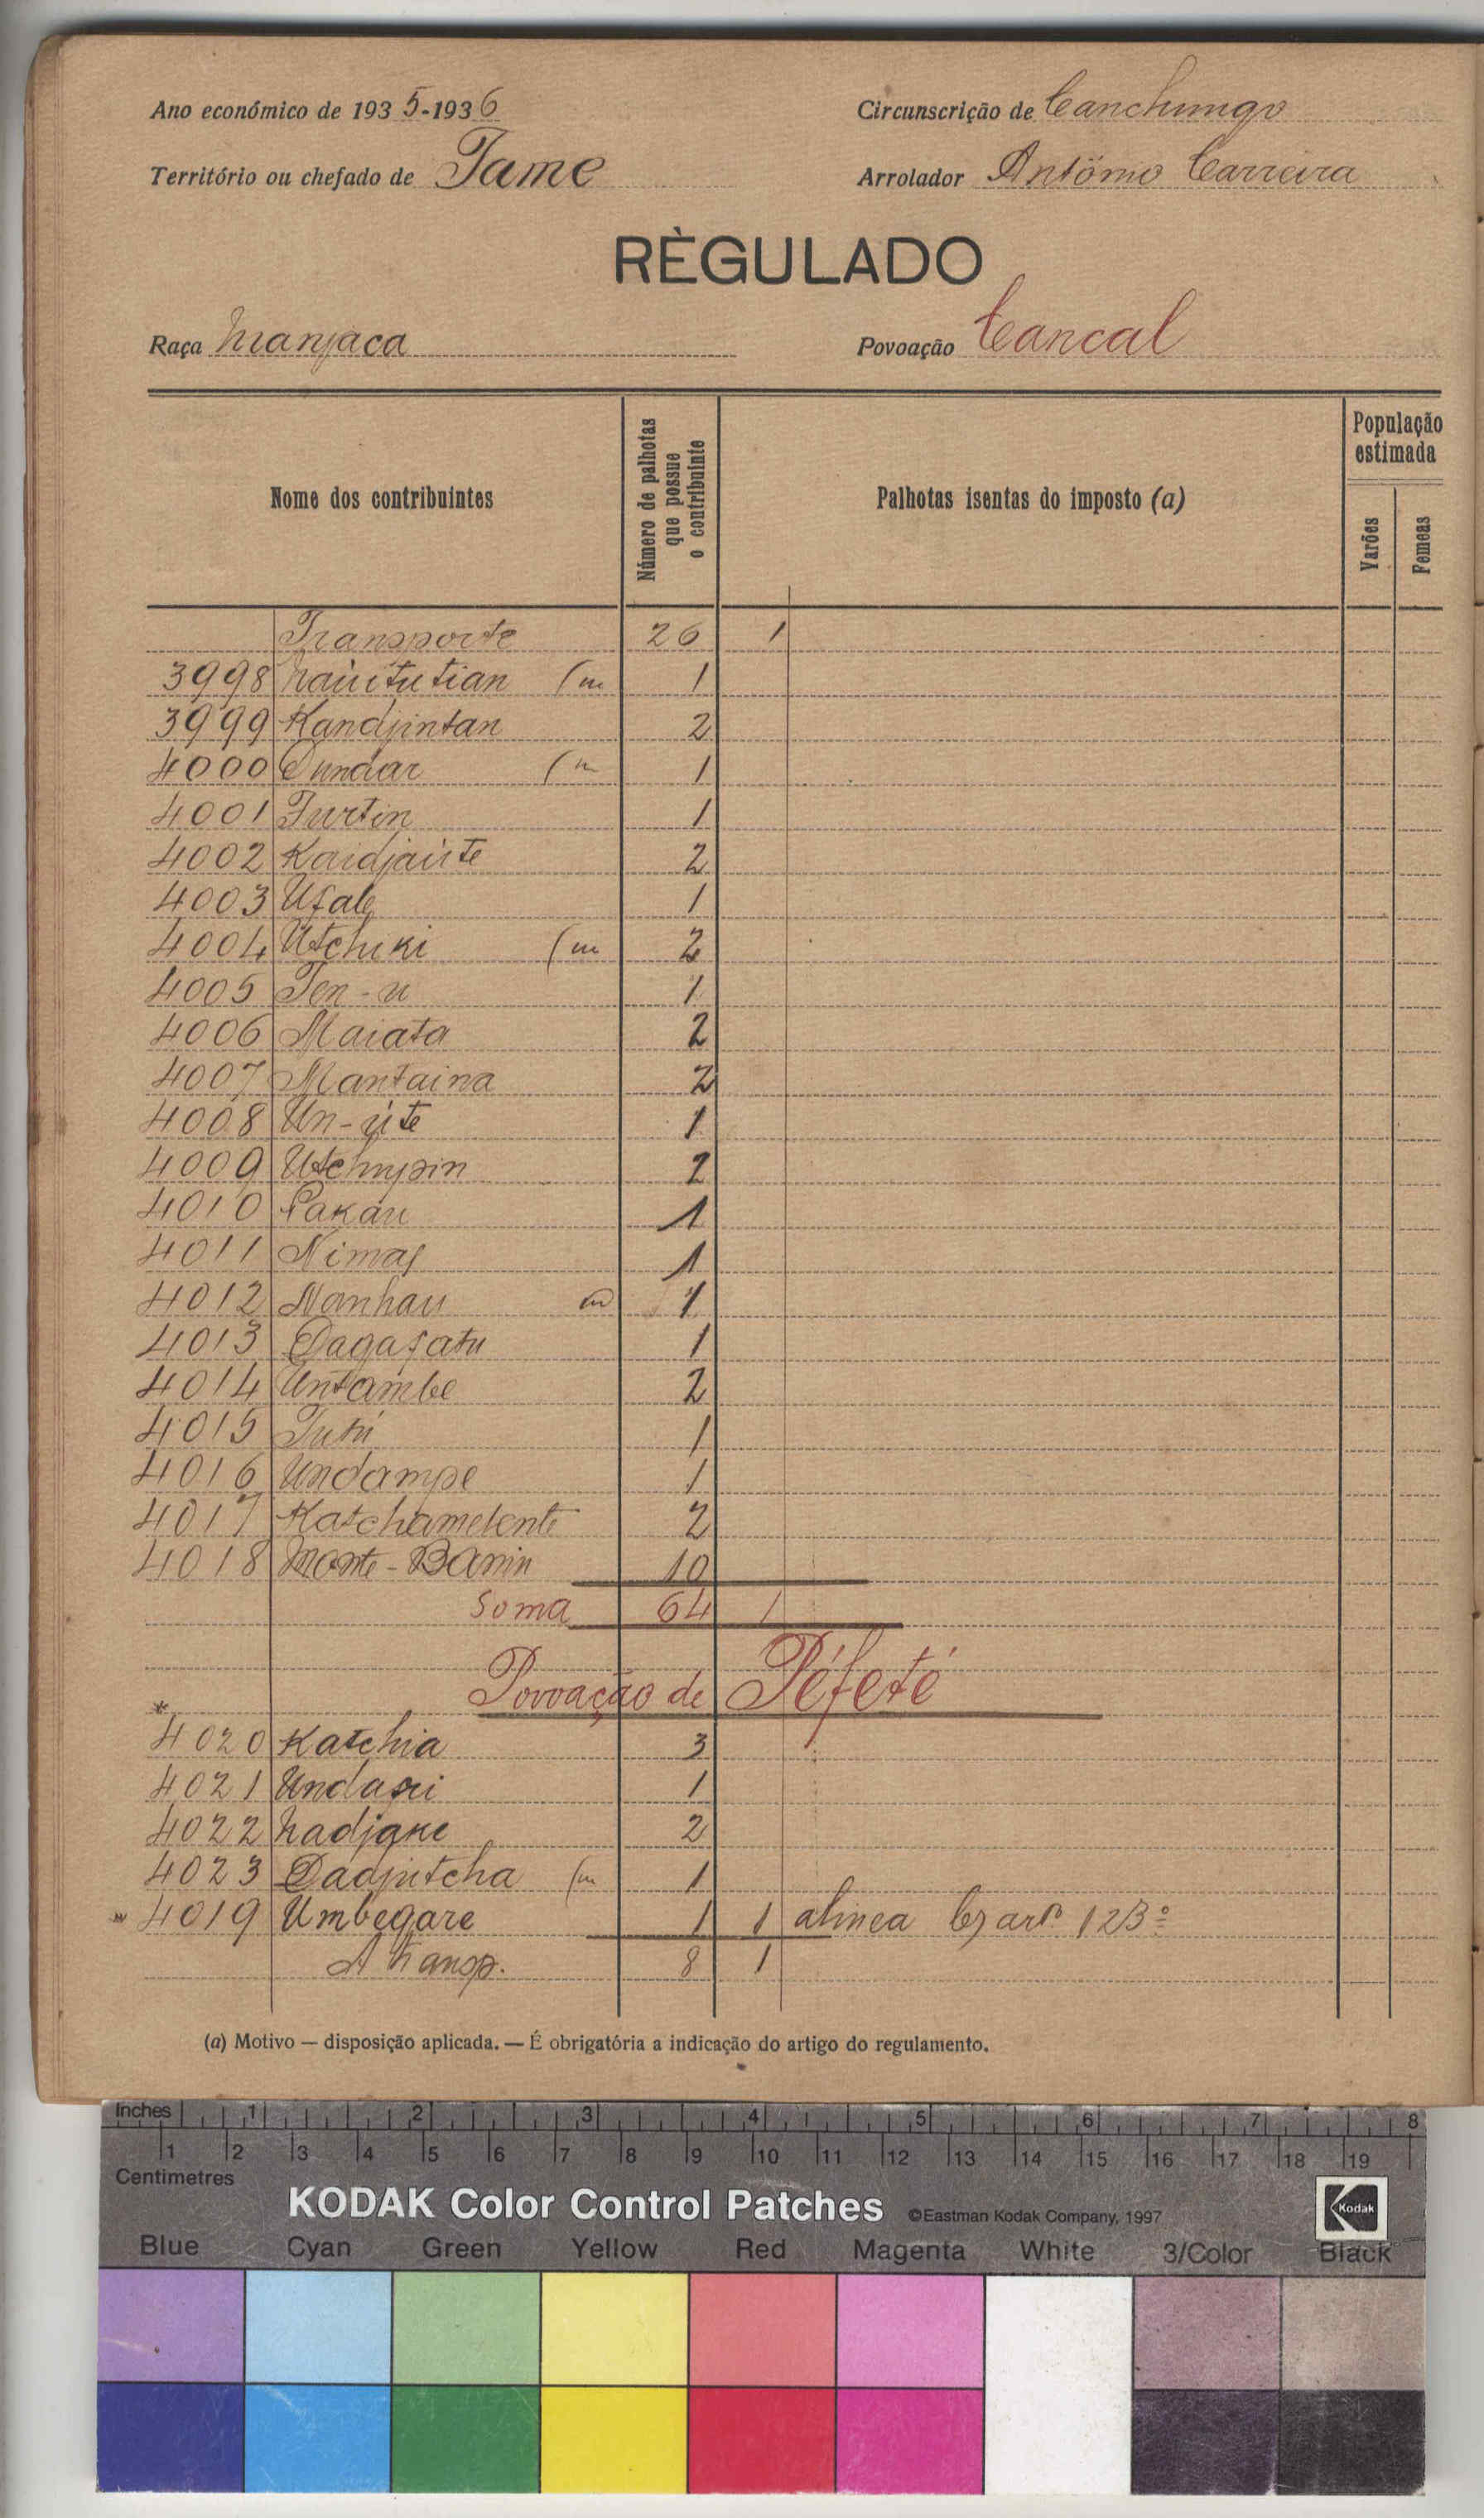 Ano económico de 1935-1936 Circunscrição de Canchungo
Território ou chefado de Tame Arrolador António Carreira
RÈGULADO
Raça Manjaca Povoação Cancal
Nome dos contribuintes
Número de palhotas que possue o contribuinte
Palhotas isentas do imposto (a)
População estimada
Varões
Femeas
Transporte 26 1
3998 Naiutu tian (m 1
3999 Kandjintan 2
4000 Dundar (m 1
4001 Turtin 1
4002 Kaidjaiite 2
4003 Ufale 1
4004 Utchiki (m 2
4005 Ten-u 1
4006 Maiata 2
4007 Mantaina 2
4008 Un-úte 1
4009 Utchupin 2
4010 Pakáu 1
4011 Nimaf 1
4012 Nanhau m 1
4013 Dagafatu 1
4014 Untambe 2
4015 Tutú 1
4016 Undampe 1
4017 Katchamelente 2
4018 Monte-Banin 10
Soma 64 1
Povoação de Péfeté
*
4020 Katchia 3
4021 Undapi 1
4022 Nadjake 2
4023 Dadjutcha (m 1
4019 Umbegare 1 1 alinea b) artº 123º
A transp. 8 1
(a) Motivo — disposição aplicada. — É obrigatória a indicação do artigo do regulamento.
Inches 1 2 3 4 5 6 7 8
1 2 3 4 5 6 7 8 9 10 11 12 13 14 15 16 17 18 19
Centimetres
KODAK Color Control Patches ©Eastman Kodak Company, 1997 Kodak
Blue Cyan Green Yellow Red Magenta White 3/Color Black